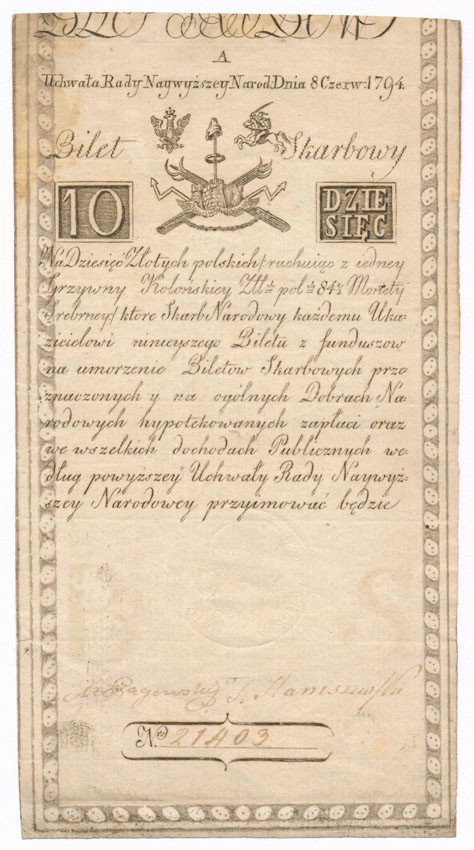 A
Uchwała Rady Naywyższey Narod: Dnia 8 Czerw: 1794.
Bilet Skarbowy
10 DZIE
SIĘC
Na Dziesięć Złotych polskich/rachuiąc z iedney
Grzywny Kolońskiey Zł: pol: 84½ Monety
Srebrney/ które Skarb Narodowy każdemu Uka-
zicielowi ninieyszego Biletu z funduszow
na umorzenie Biletów Skarbowych prze-
znaczonych y na ogólnych Dobrach Na-
rodowych hypotekowanych zapłaci oraz
we wszelkich dochodach Publicznych we-
dług powyższey Uchwały Rady Naywyż-
szey Narodowey przyimować będzie
Staniszewski
Nro 21403